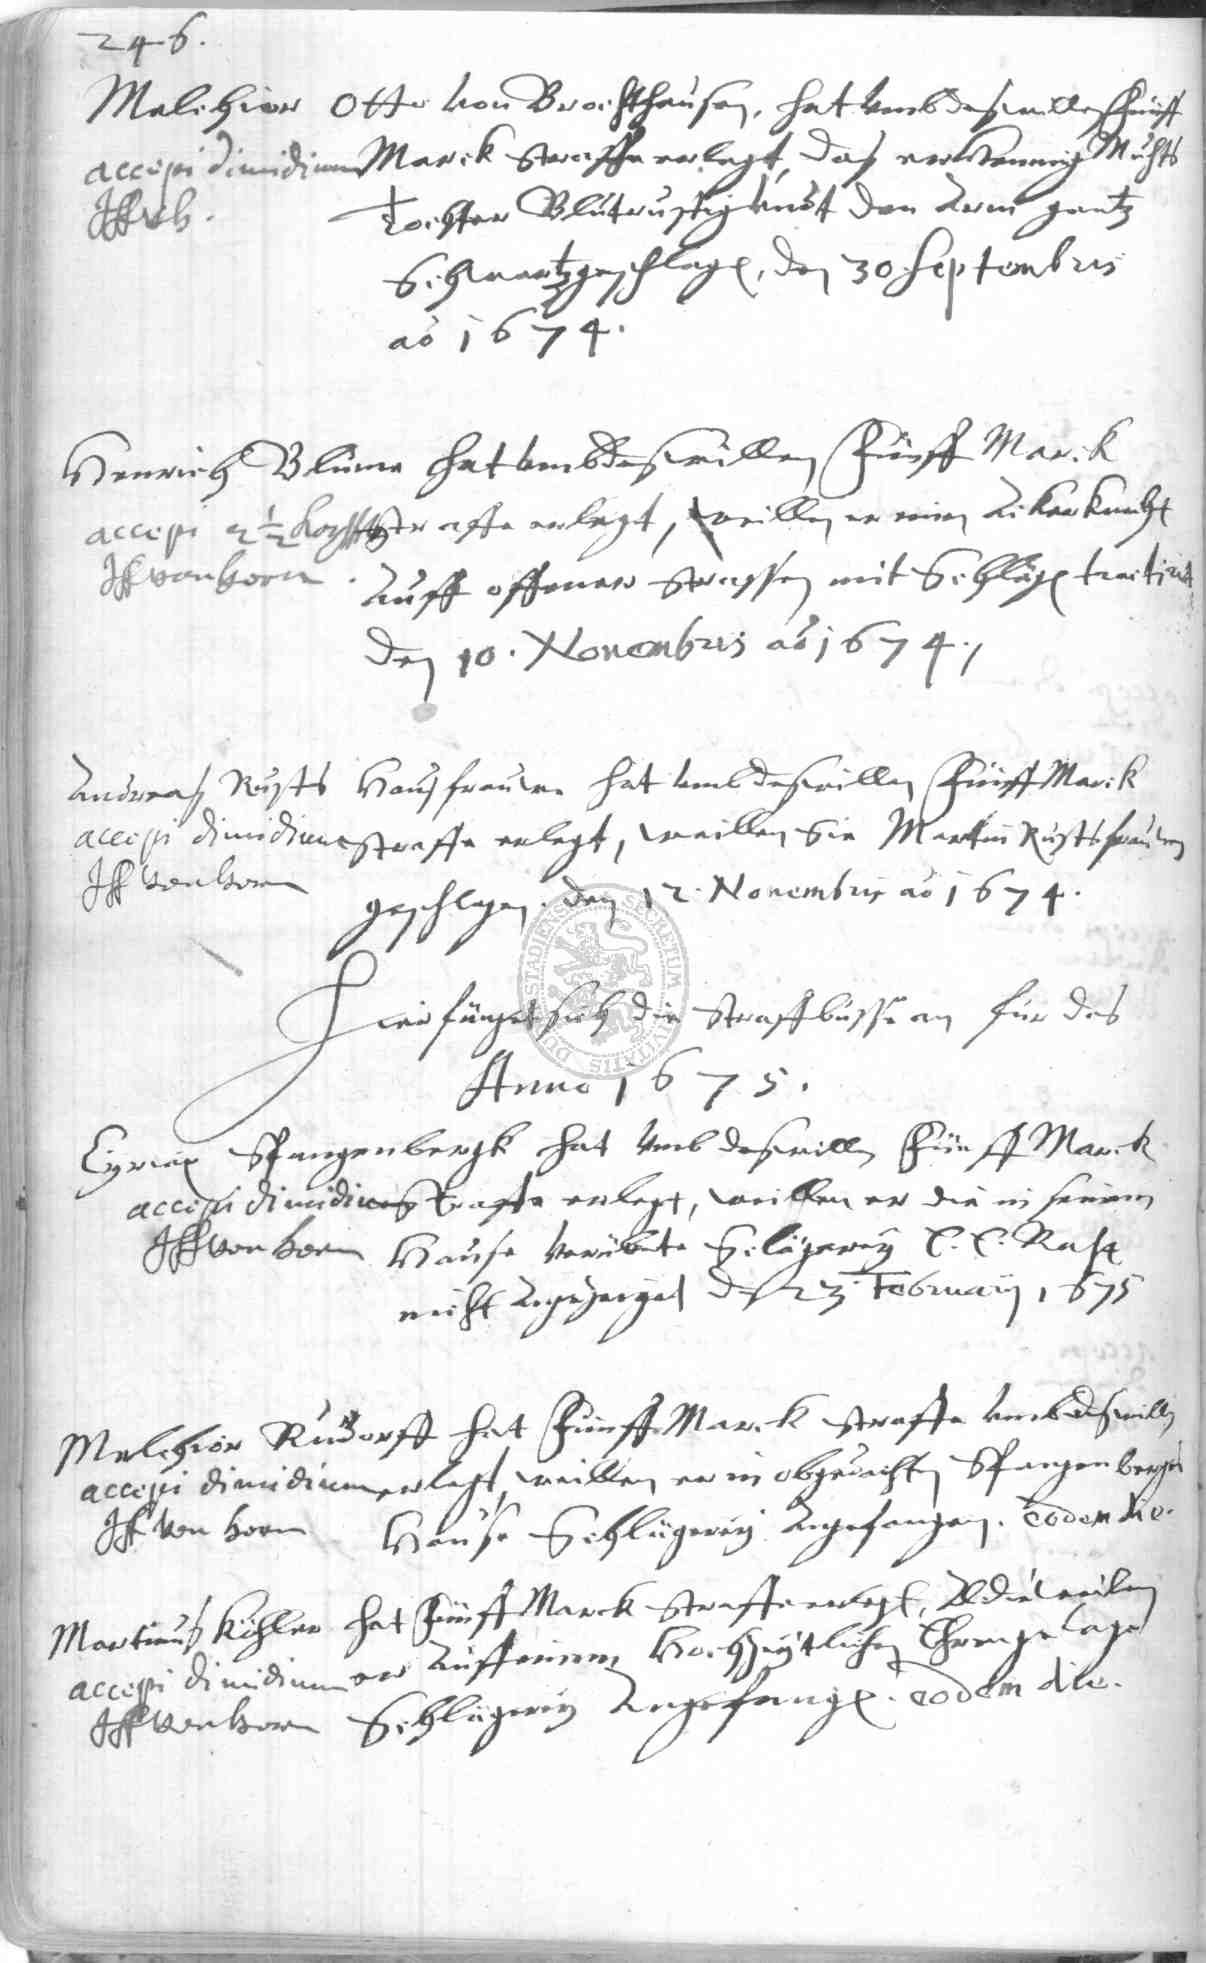 246.
Melchior Otto von Brochthausen, hat umb deswillen Fünff
accepi dimidium Marck Straffe erlegt, das er Henning Muhts
JffvH. Tochter Blutrustig undt den Arm gantz
Schwartz geschlagen, den 30 Septembris
ao 1674.
Henrich Blume hat umb deswillen Fünff Marck
accepi 2½ Straffe erlegt, weillen er einen Ackerknecht
Jff von Horn. Auff offener Strassen mit Schlägen tractiret
den 10. Novembris ao 1674.
Andreas Rusts Hausfrauwe hat umb deswillen Fünff Marck
accepi dimidium Straffe erlegt, weillen Sie Martin Rusts frauwen
Jff von Horn geschlagen. den 12. Novembris ao 1674.
Hier fänget sich die Straffbusse an für das
Anno 1675.
Cyriax Spangenbergk hat umb deswillen Fünff Marck
accepi dimidium Straffe erlegt, weillen er die in seinem
Jff von Horn Hause verübte Schlägerey E. E. Raht
nicht Angezeiget den 23 Februarij 1675
Melchior Rudorff hat Fünff Marck Straffe umb deswillen
accepi dimidium erlegt, weillen er in obgedachten Spangenbergs
Jff von Horn Hause Schlägerey Angefangen. eodem die.
Martinus Köhler hat Fünff Marck Straffe erlegt, Alldieweilen
accepi dimidium er Auff einem Hochzeytlichen Ehrengelage
Jff von Horn Schlägerey Angefangen. eodem die.
SECRETUM CIVITATIS STADIENS